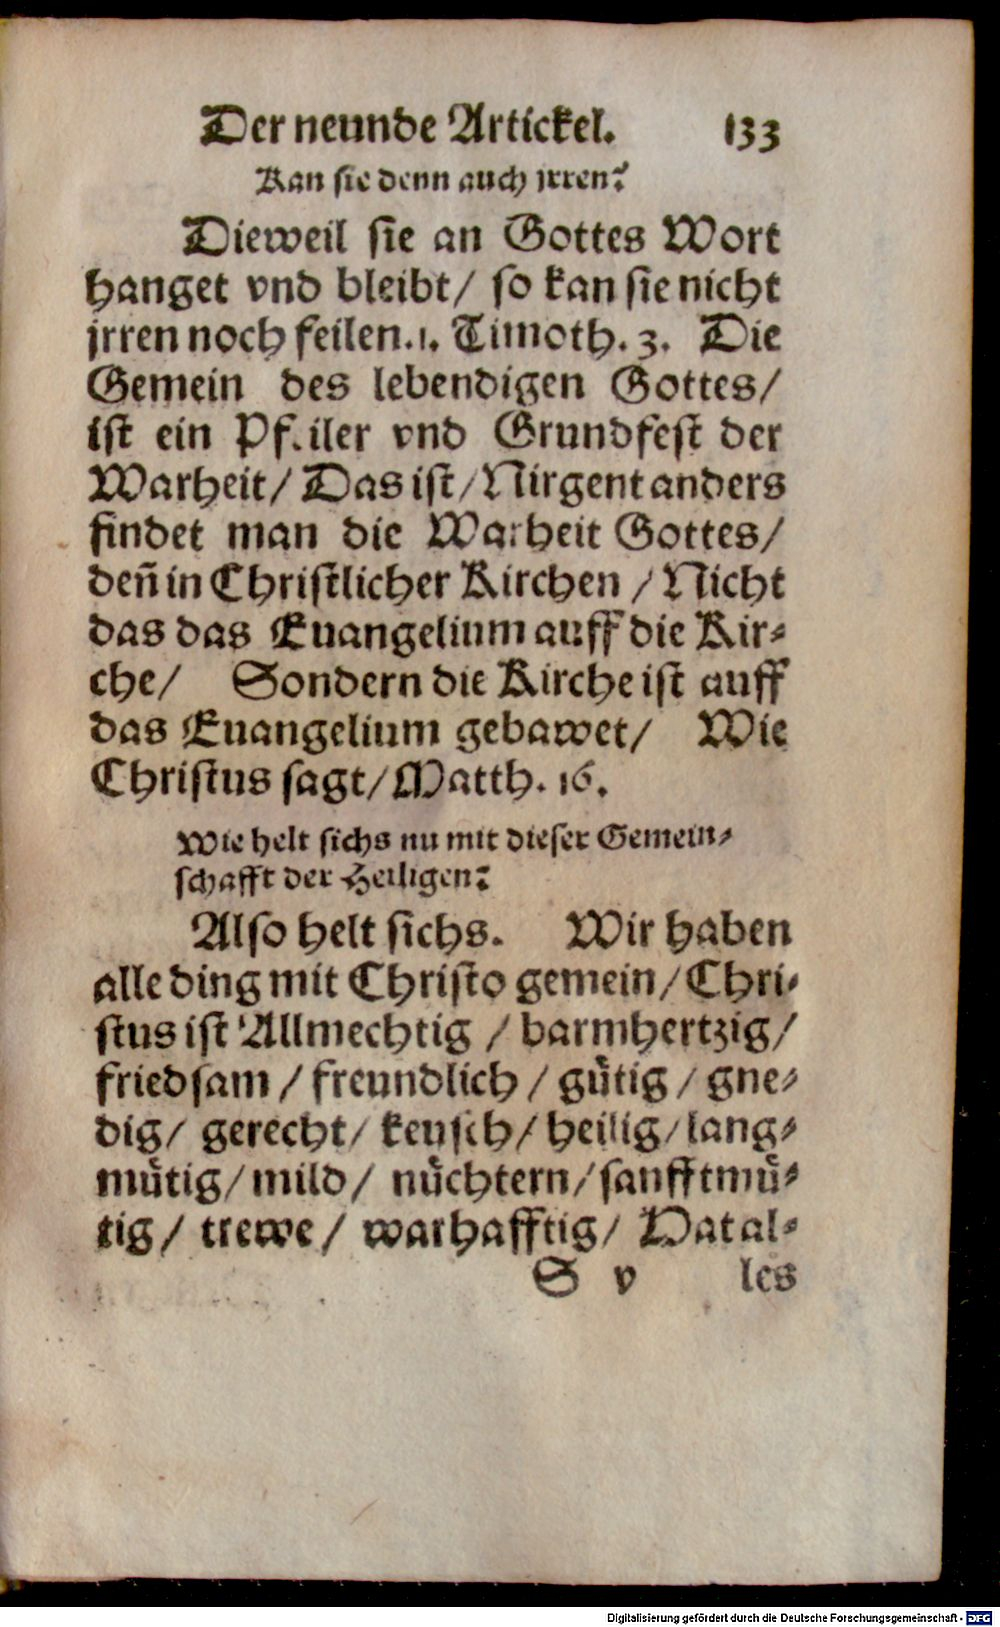 Der neunde Artickel. 133
Kan sie denn auch jrren?
Dieweil sie an Gottes Wort
hanget vnd bleibt/ so kan sie nicht
jrren noch feilen. 1. Timoth. 3. Die
Gemein des lebendigen Gottes/
ist ein Pfeiler vnd Grundfest der
Warheit/ Das ist/ Nirgent anders
findet man die Warheit Gottes/
deñ in Christlicher Kirchen / Nicht
das das Euangelium auff die Kir⸗
che/ Sondern die Kirche ist auff
das Euangelium gebawet/ Wie
Christus sagt/ Matth. 16.
Wie helt sichs nu mit dieser Gemein⸗
schafft der Heiligen?
Also helt sichs. Wir haben
alle ding mit Christo gemein/ Chri⸗
stus ist Allmechtig / barmhertzig/
friedsam / freundlich / guͤtig / gne⸗
dig/ gerecht/ keusch/ heilig/ lang⸗
muͤtig/ mild/ nuͤchtern/ sanfftmuͤ⸗
tig/ trewe/ warhafftig/ Hat al⸗
S v les
Digitalisierung gefördert durch die Deutsche Forschungsgemeinschaft - DFG